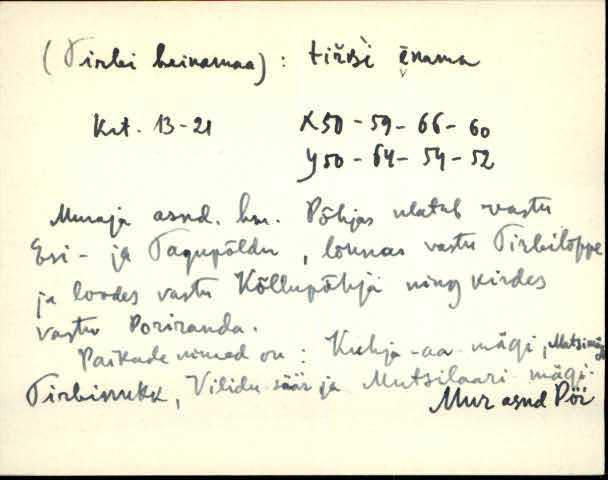 (Tirbi heinamaa): tiŕʙ̀i ēnama
Krt. 13-21 X50-59-66-60
Y50-64-54-52
Muraja asnd. hm. Põhjas ulatub vastu
Esi- ja Tagupõldu, lõunas vastu Tirbiloppe
ja loodes vastu Kõllupõhja ning kirdes
vastu Poriranda.
Paikade nimed on: Kuhja-aa-mägi, Mutsi
Tirbinukk, Vilidu säär ja Mutsilaari mägi.
Mur asnd Pöi